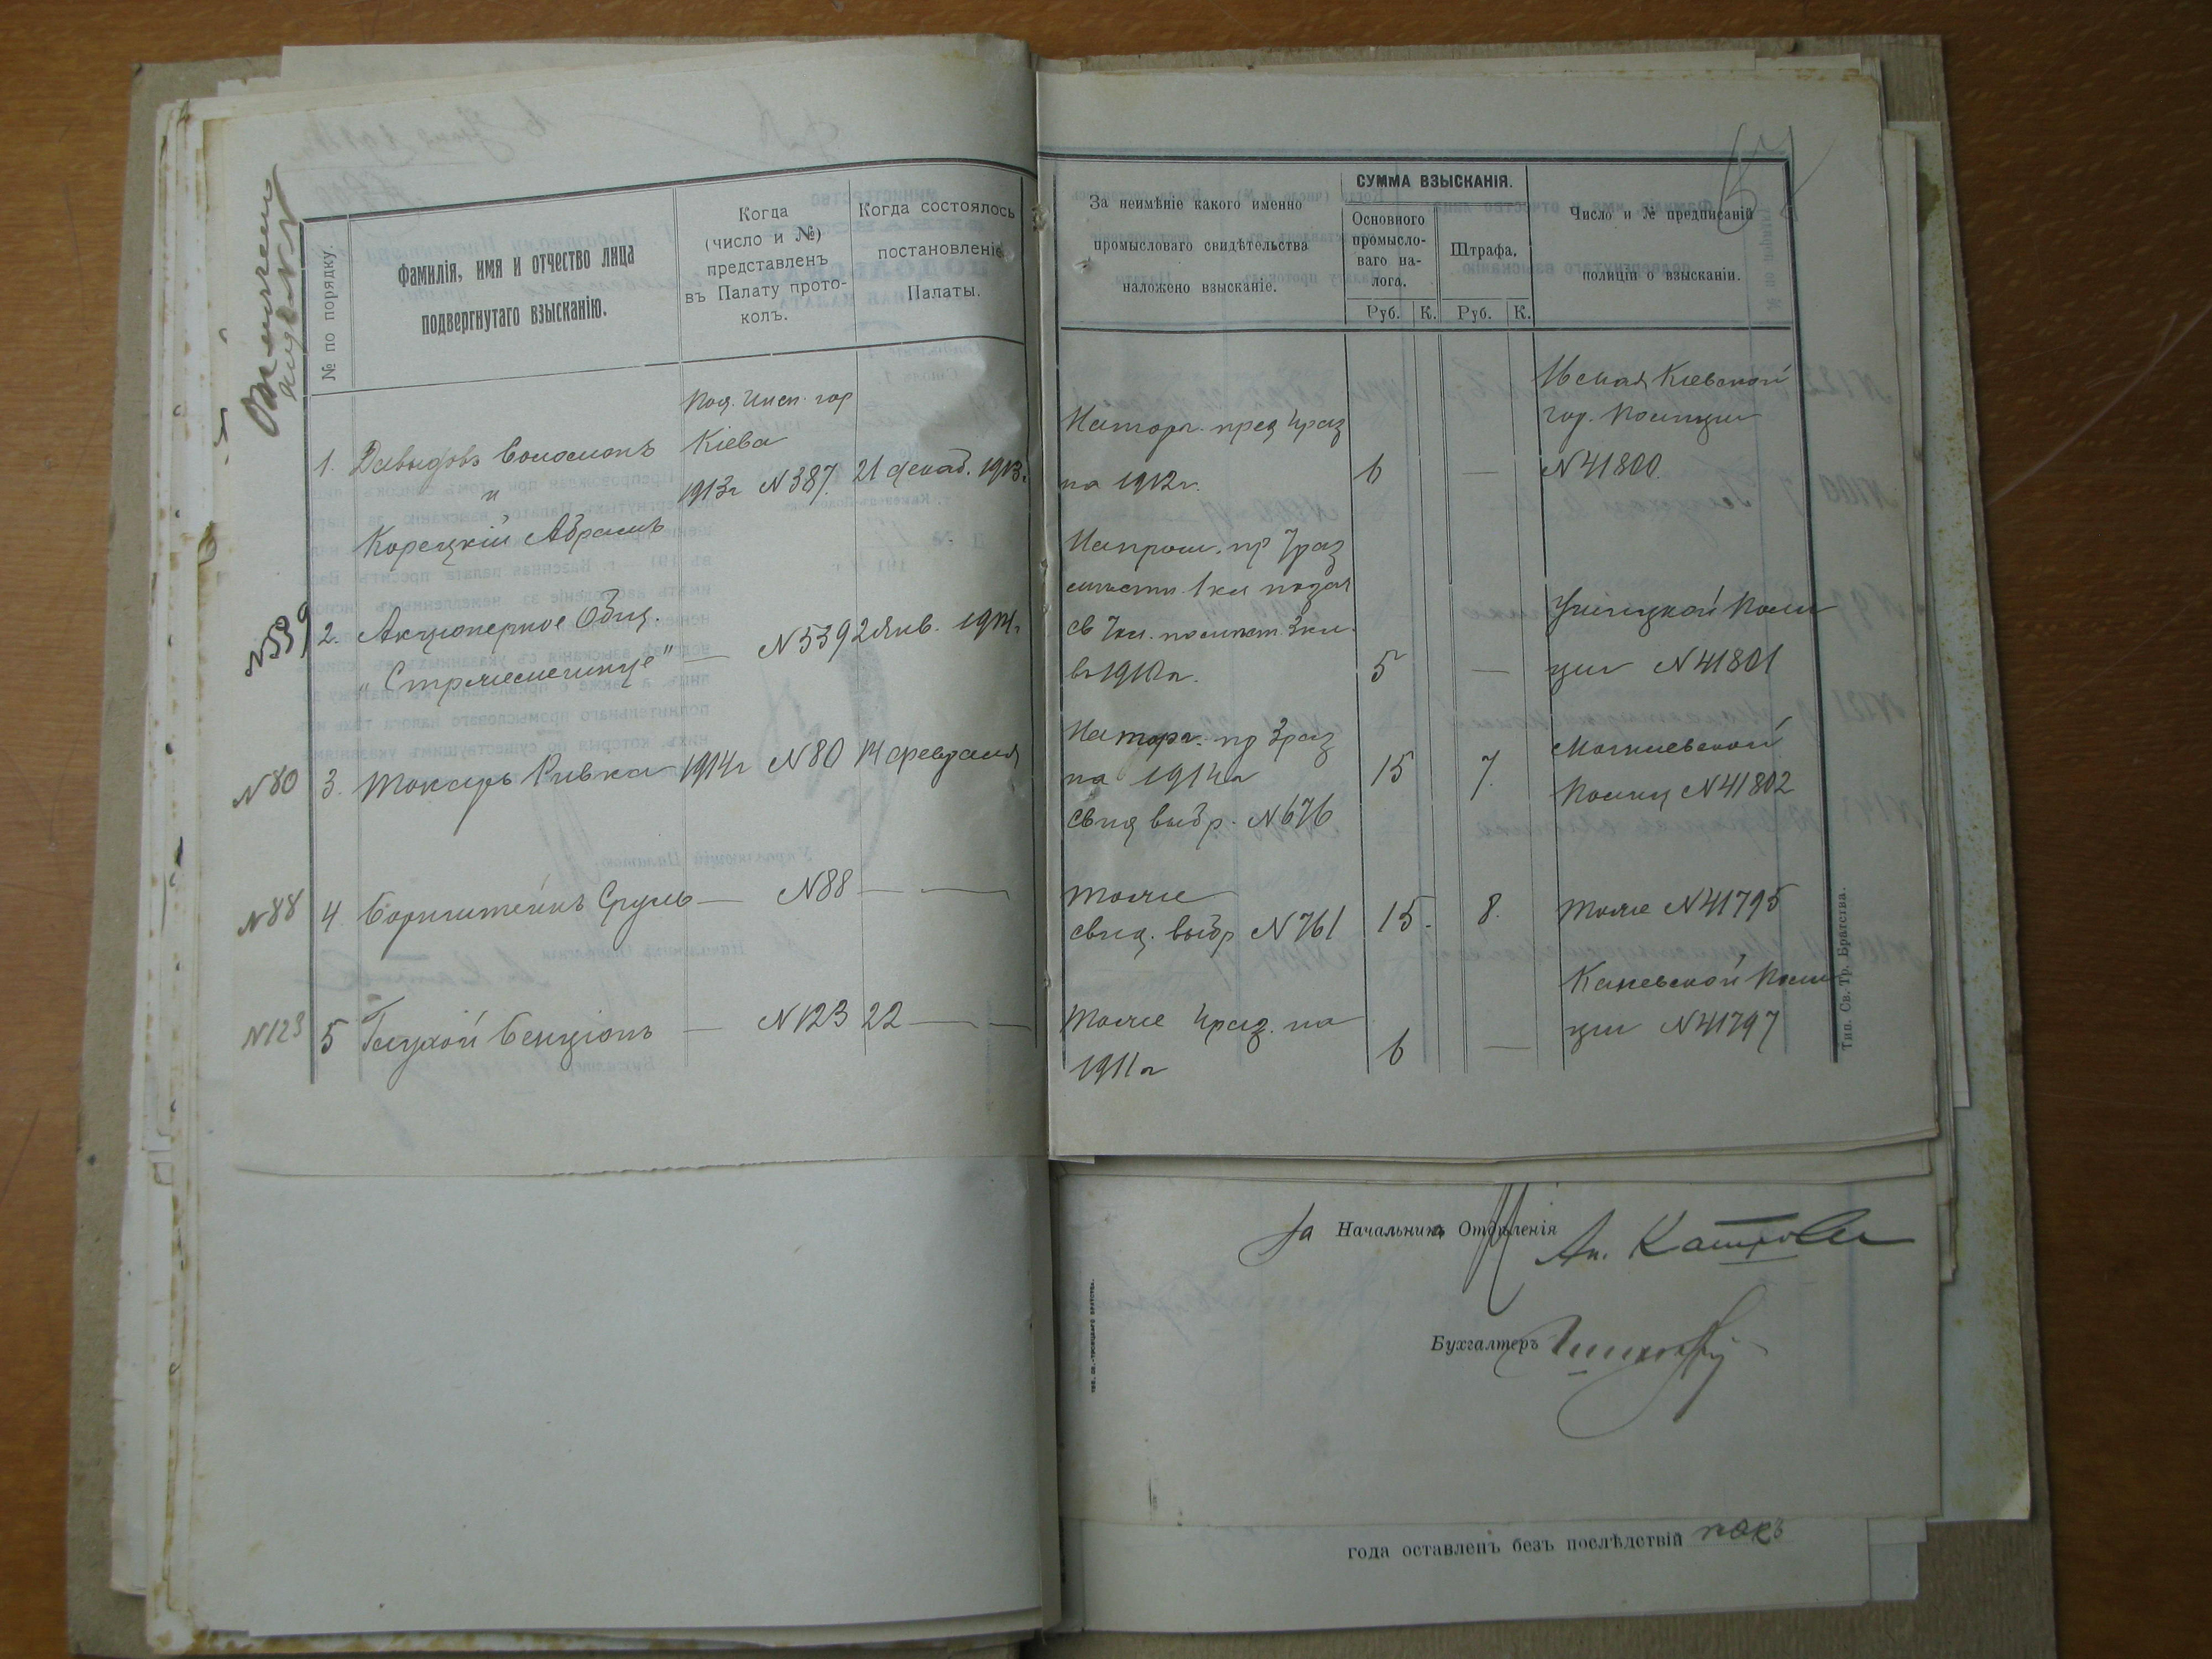 № по порядку.
Фамилія, имя и отчество лица
подвергнутаго взысканію.
Когда
(число и №)
представленъ
въ Палату прото-
колъ.
Когда состоялось
постановленіе
Палаты.
За неимѣніе какого именно
промысловаго свидѣтельства
наложено взысканіе.
СУММА ВЗЫСКАНІЯ.
Основного
промысло-
ваго на-
лога.
Штрафа,
Руб. К. Руб. К.
Число и № предписаній
полиціи о взысканіи.
Под. Инсп. гор
1. Давыдовъ Соломонъ Кіева
и 1913г N 387. 21 декаб. 1913г.
Корецкій Абрамъ
На торг. пред 4 раз
на 1912г. 6 —
16 мая Кіевской
гор. Полиціи
N 41800.
N539 2. Акціонерное Общ.
„Стрѣмсмешинце" — N 539 2 Янв. 1914г
На пром. пр 7 раз
св 7кл. 3 кл.
в 1910г. 5 —
Ушицкой Поли
ціи N 41801
N80 3. Токарь Ривка 1914г N80 14 февраля
На торг. пр 3 раз
на 1914г 15 7.
свид выбр. N 676
Могилевской
Полиц N 41802
N88 4. Борнштейнъ Сруль — N88 —
тоже
свид. выбр N 761 15. 8. тоже N 41795
N123 5 Глухой Бенціонъ — N123 22 — —
тоже 4 разр. на
1911г 6 —
Каневской Поли
ціи N 41797
Тип. Св. Тр. Братства.
За Начальника Отдѣленія
Бухгалтеръ
года оставленъ безъ послѣдствій